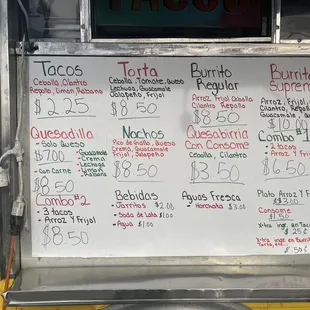 TACOS
Tacos
Cebolla, Cilantro
Repollo, Limon, Rabano
$2.25
Torta
Cebolla, Tomate, Queso
Lechuga, Guacamole
Jalapeño, Frijol
$8.50
Burrito
Regular
Arroz, Frijol, Cebolla
Cilantro, Repollo
$8.50
Burrito
Suprem
Arroz, Frijol,
Cilantro
Queso
Guacamole
$10.0
Quesadilla
- Solo Queso
$7.00
- Con Carne
$8.50
- Guacamole
- Crema
- Lechuga
- Limon
- Rabano
Nachos
Pico de Gallo, Queso
Crema, Guacamole
Frijol, Jalapeño
$8.50
Quesabirria
Con Consome
Cebolla, Cilantro
$3.50
Combo #1
- 2 tacos
- Arroz Y Frijol
$6.50
Combo #2
- 3 tacos
- Arroz Y Frijol
$8.50
Bebidas
- Jarritos $2.00
- Soda de Lata $1.00
- Agua $1.00
Aguas Fresca
- Horchata $3.00
Plato Arroz Y Fr
$3.00
Consome
$1.50
X-tra ingr. en Tacos
$.25¢
X-tra ingr. en Burrito
Torta, etc...
$.50¢